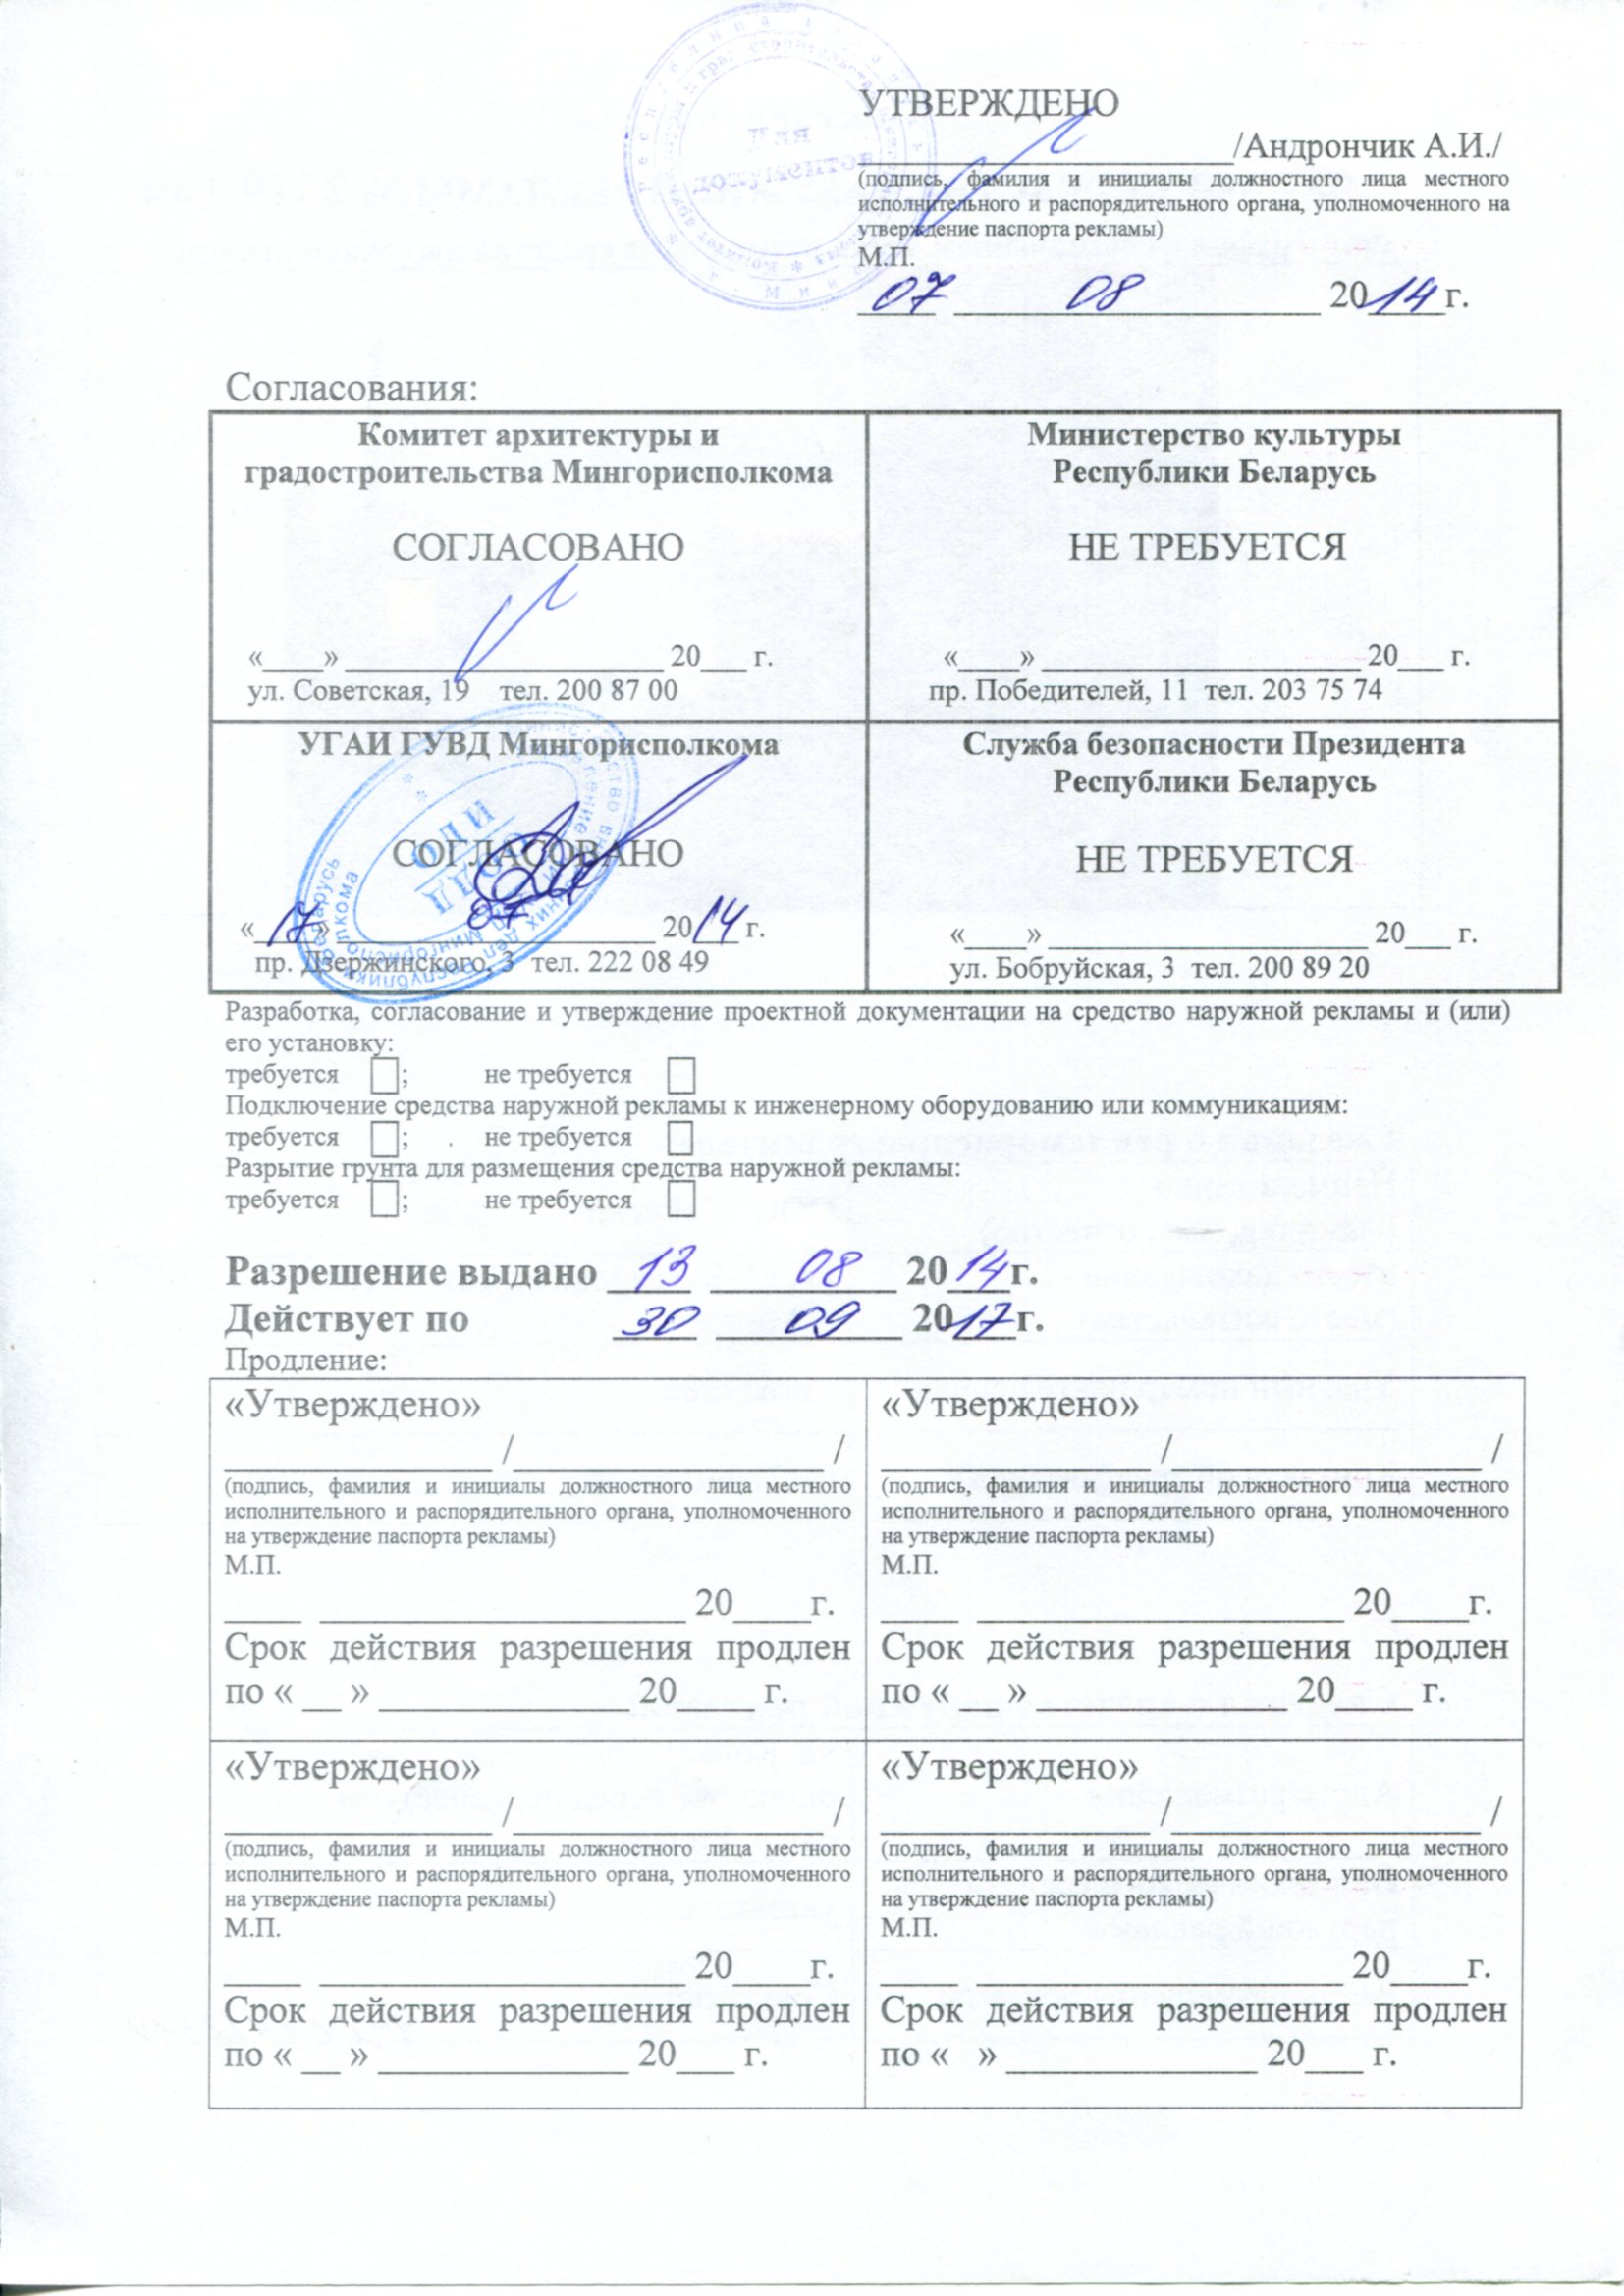 УТВЕРЖДЕНО
____________________/Андрончик А.И./
(подпись, фамилия и инициалы должностного лица местного
исполнительного и распорядительного органа, уполномоченного на
утверждение паспорта рекламы)
М.П.
07 08 2014г.
Согласования:
Комитет архитектуры и
градостроительства Мингорисполкома
СОГЛАСОВАНО
«____» _____________________ 20___ г.
ул. Советская, 19 тел. 200 87 00
Министерство культуры
Республики Беларусь
НЕ ТРЕБУЕТСЯ
«____» _____________________ 20___ г.
пр. Победителей, 11 тел. 203 75 74
УГАИ ГУВД Мингорисполкома
СОГЛАСОВАНО
«17» 07 2014 г.
пр. Дзержинского, 3 тел. 222 08 49
Служба безопасности Президента
Республики Беларусь
НЕ ТРЕБУЕТСЯ
«____» _____________________ 20___ г.
ул. Бобруйская, 3 тел. 200 89 20
Разработка, согласование и утверждение проектной документации на средство наружной рекламы и (или)
его установку:
требуется ☐; не требуется ☐
Подключение средства наружной рекламы к инженерному оборудованию или коммуникациям:
требуется ☐; не требуется ☐
Разрытие грунта для размещения средства наружной рекламы:
требуется ☐; не требуется ☐
Разрешение выдано 13 08 2014г.
Действует по 30 09 2017г.
Продление:
«Утверждено»
______________ /________________ /
(подпись, фамилия и инициалы должностного лица местного
исполнительного и распорядительного органа, уполномоченного
на утверждение паспорта рекламы)
М.П.
____ ___________________ 20____г.
Срок действия разрешения продлен
по « __ » _____________ 20____ г.
«Утверждено»
______________ /________________ /
(подпись, фамилия и инициалы должностного лица местного
исполнительного и распорядительного органа, уполномоченного
на утверждение паспорта рекламы)
М.П.
____ ___________________ 20____г.
Срок действия разрешения продлен
по « __ » _____________ 20____ г.
«Утверждено»
______________ /________________ /
(подпись, фамилия и инициалы должностного лица местного
исполнительного и распорядительного органа, уполномоченного
на утверждение паспорта рекламы)
М.П.
____ ___________________ 20____г.
Срок действия разрешения продлен
по « __ » _____________ 20___ г.
«Утверждено»
______________ /________________ /
(подпись, фамилия и инициалы должностного лица местного
исполнительного и распорядительного органа, уполномоченного
на утверждение паспорта рекламы)
М.П.
____ ___________________ 20____г.
Срок действия разрешения продлен
по « » _____________ 20___ г.